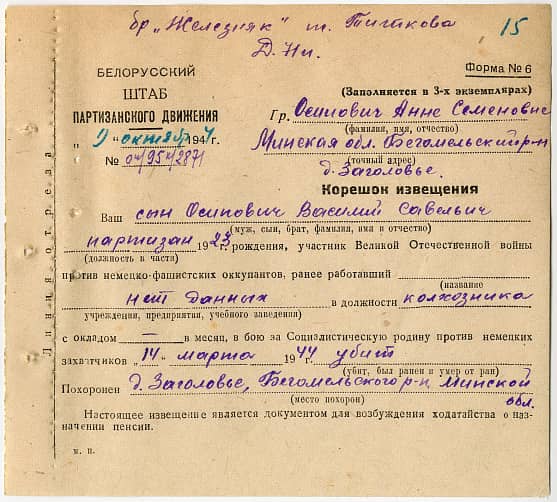 бр "Железняк" т. Титкова
15
Д. Нл.
БЕЛОРУССКИЙ
ШТАБ
ПАРТИЗАНСКОГО ДВИЖЕНИЯ
"9" октября 1944 г.
№ 04/954/2871
Форма № 6
(Заполняется в 3-х экземплярах)
Гр. Осипович Анне Семеновне
(фамилия, имя, отчество)
Минская обл. Бегомельский р-н
(точный адрес)
д. Заголовье.
Корешок извещения
Ваш сын Осипович Василий Савельич
(муж, сын, брат, фамилия, имя и отчество)
партизан 1923 г. рождения, участник Великой Отечественной войны
(должность в части)
против немецко-фашистских оккупантов, ранее работавший
(название
нет данных в должности колхозника
учреждения, предприятия, учебного заведения)
с окладом — в месяц, в бою за Социалистическую родину против немецких
захватчиков "14" марта 1944 убит
(убит, был ранен и умер от ран)
Похоронен д. Заголовье, Бегомельского р-н, Минской
(место похорон) обл.
Настоящее извещение является документом для возбуждения ходатайства о наз-
начении пенсии.
м. п.
Линия отреза